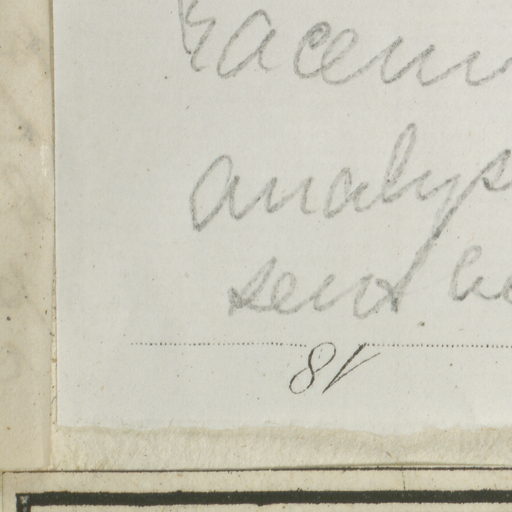 racem
analys
sent
18